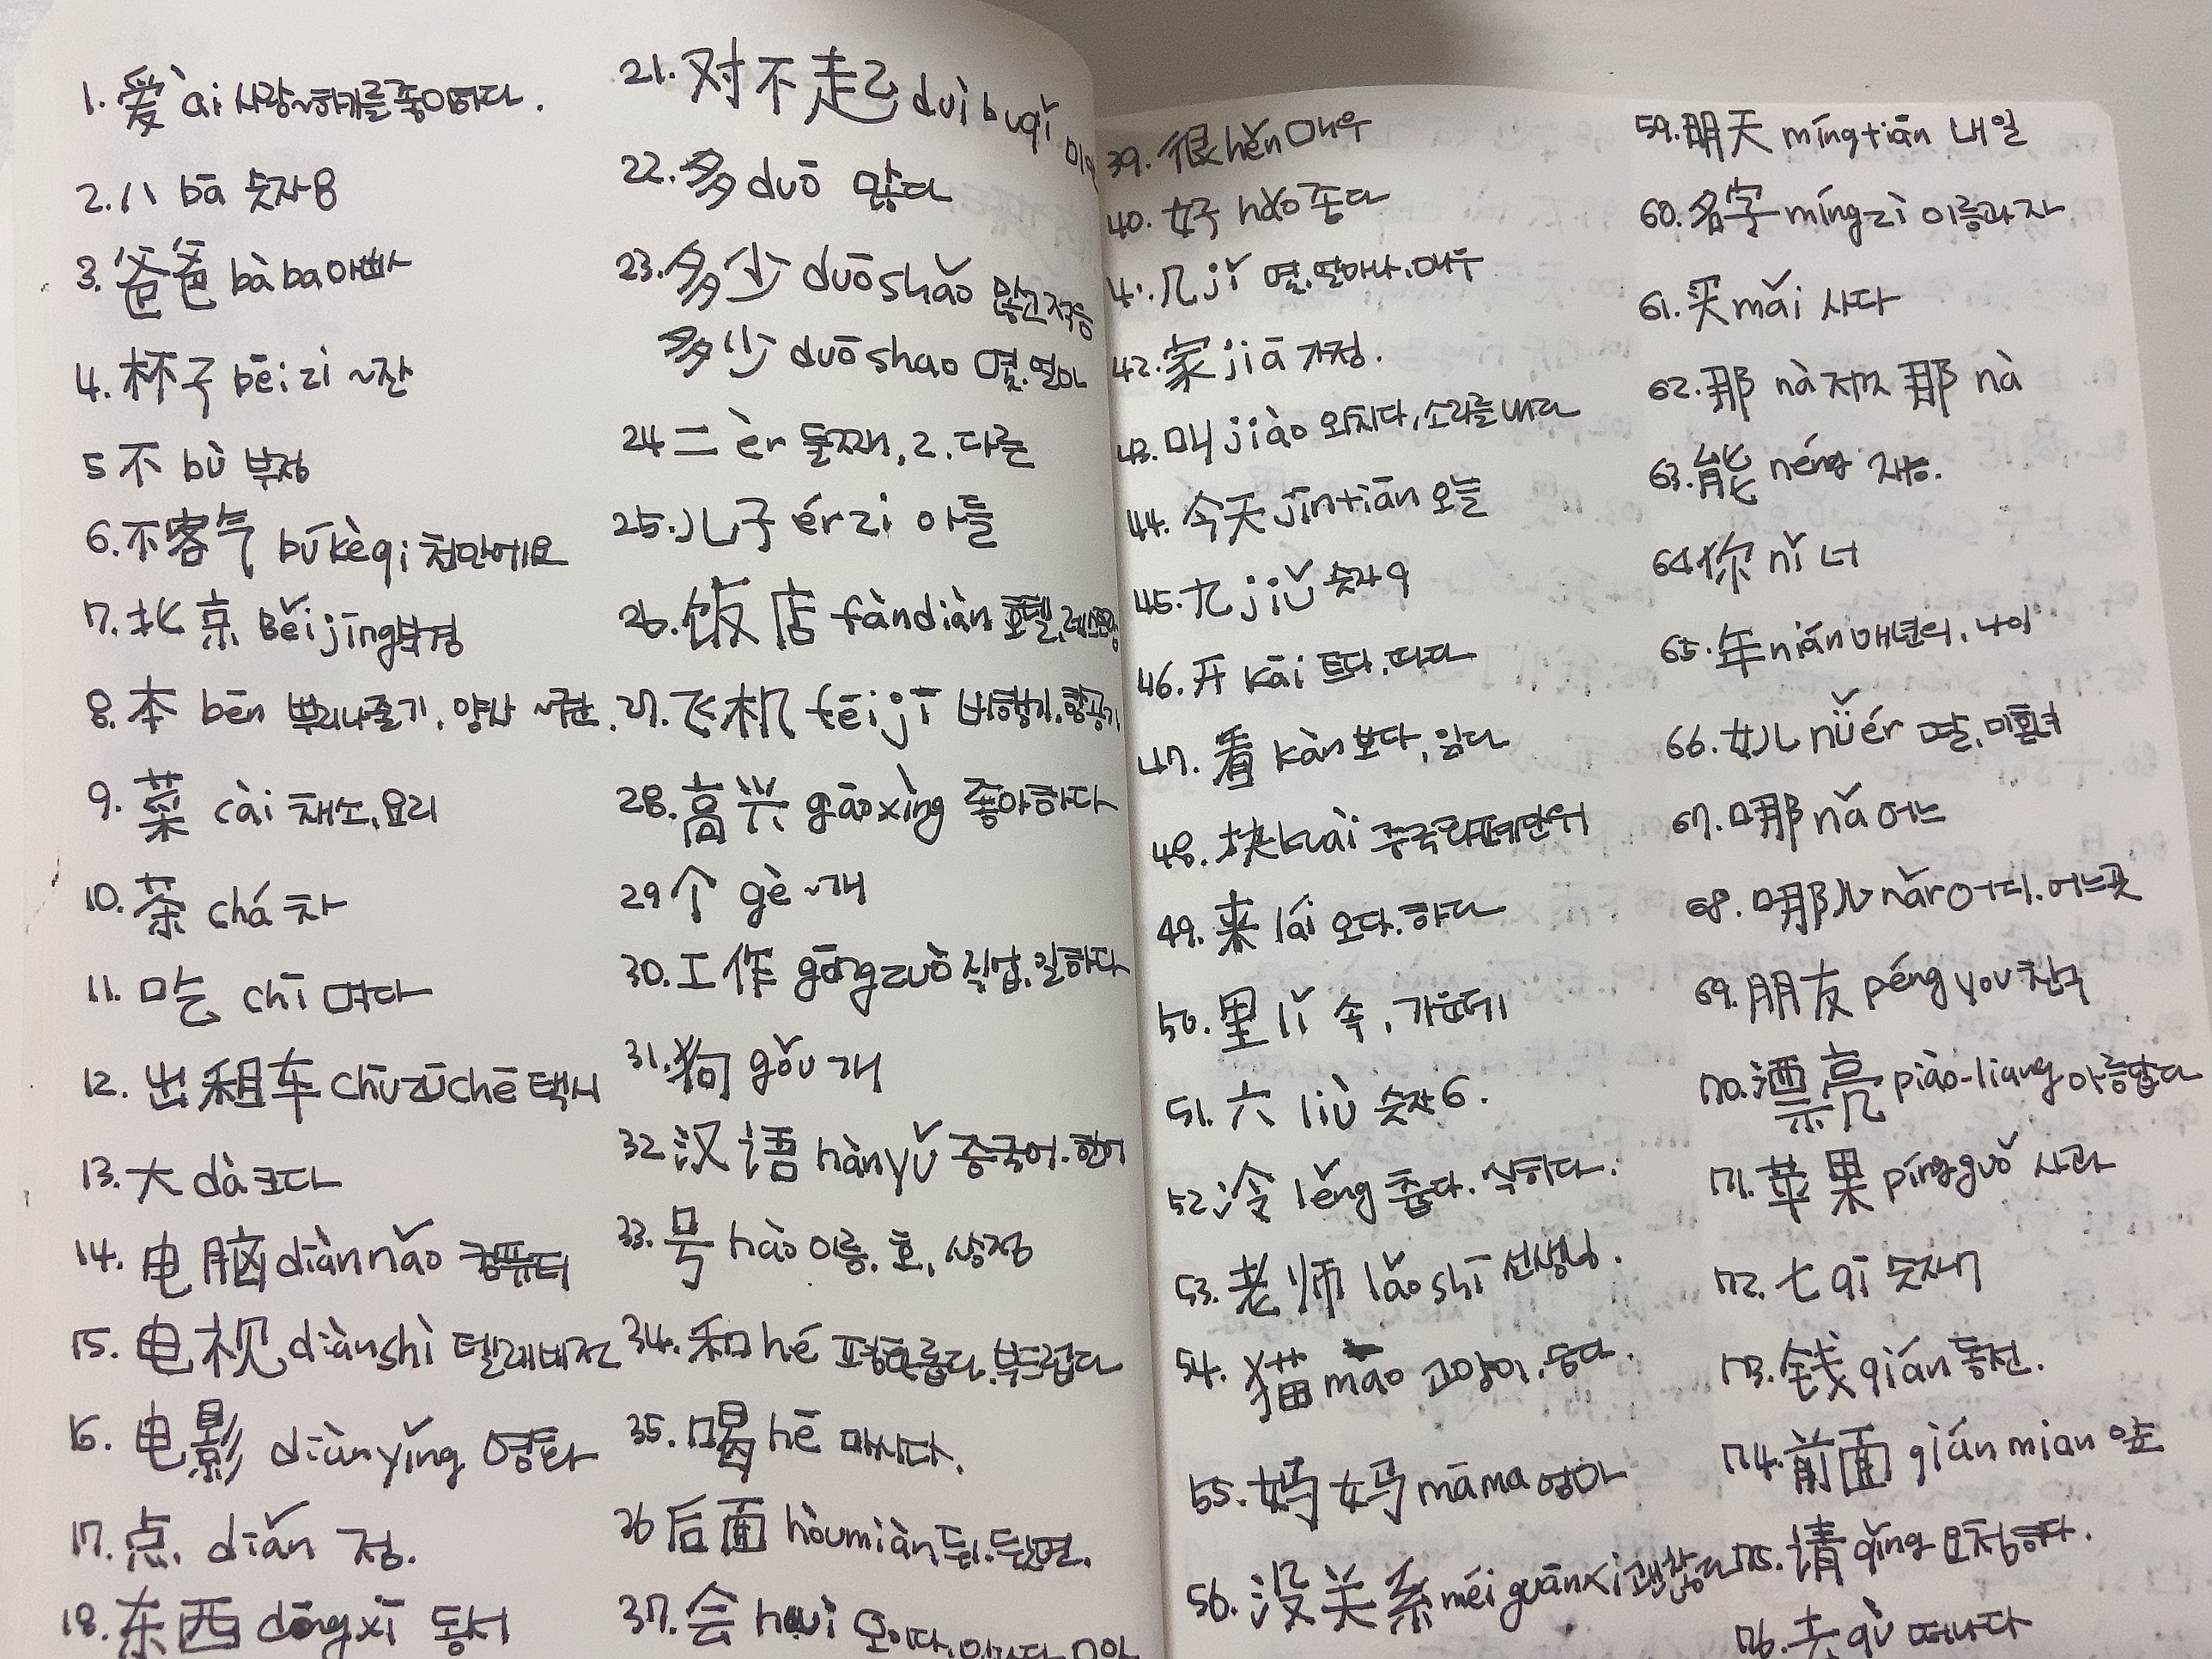 1. 爱 ài 사랑~하기를 좋아하다.
2. 八 bā 숫자8
3. 爸爸 bàba 아빠
4. 杯子 bēizi ~잔
5 不 bù 부정
6. 不客气 búkèqi 천만에요
7. 北京 Běijīng 북경
8. 本 běn 뿌리나줄기, 양사 ~권.
9. 菜 cài 채소,요리
10. 茶 chá 차
11. 吃 chī 먹다
12. 出租车 chūzūchē 택시
13. 大 dà 크다
14. 电脑 diànnǎo 컴퓨터
15. 电视 diànshì 텔레비전
16. 电影 diànyǐng 영화
17. 点. diǎn 점.
18. 东西 dōngxī 동서
21. 对不起 duìbuqǐ
22. 多 duō 많다
23. 多少 duōshǎo
多少 duōshao 몇.얼마
24 二 èr 둘째, 2. 다른
25. 儿子 érzi 아들
26. 饭店 fàndiàn 호텔,레스토랑
27. 飞机 fēijī 비행기.항공기
28. 高兴 gāoxìng 좋아하다
29 个 gè ~개
30. 工作 gōngzuò 직업.일하다
31. 狗 gǒu 개
32 汉语 hànyǔ 중국어.한어
33. 号 hào 이름. 호,
34. 和 hé 평화롭다.부드럽다
35. 喝 hē 마시다.
36 后面 hòumiàn 뒤.뒷면.
37. 会 huì
39. 很 hěn 매우
40. 好 hǎo 좋다
41. 几 jǐ 몇.얼마나.매우
42. 家 jiā 가정.
43. 叫 jiào 외치다,소리를내다
44. 今天 jīntiān 오늘
45. 九 jiǔ 숫자9
46. 开 kāi 트다.따다
47. 看 kàn 보다, 읽다
48. 块 kuài 중국화폐단위
49. 来 lái 오다.하다
50. 里 lǐ 속, 가운데
51. 六 liù 숫자6.
52 冷 lěng 춥다. 식히다.
53. 老师 lǎoshī 선생님.
54. 猫 māo 고양이.숨다.
55. 妈妈 māma 엄마
56. 没关系 méi guānxi 괜찮다
59. 明天 míngtiān 내일
60. 名字 míngzì 이름과자
61. 买 mǎi 사다
62. 那 nà 저것 那 nà
63. 能 néng 재능.
64 你 nǐ 너
65. 年 nián 매년의, 나이
66. 女儿 nǚér 딸,미혼녀
67. 哪 nǎ 어느
68. 哪儿 nǎr 어디.어느곳
69. 朋友 péngyou 친구
70. 漂亮 piào-liang 아름답다
71. 苹果 píngguǒ 사과
72. 七 qī 숫자7
73. 钱 qián 동전.
74. 前面 qiánmian 앞
75. 请 qǐng 요청하다.
76. 去 qù 떠나다